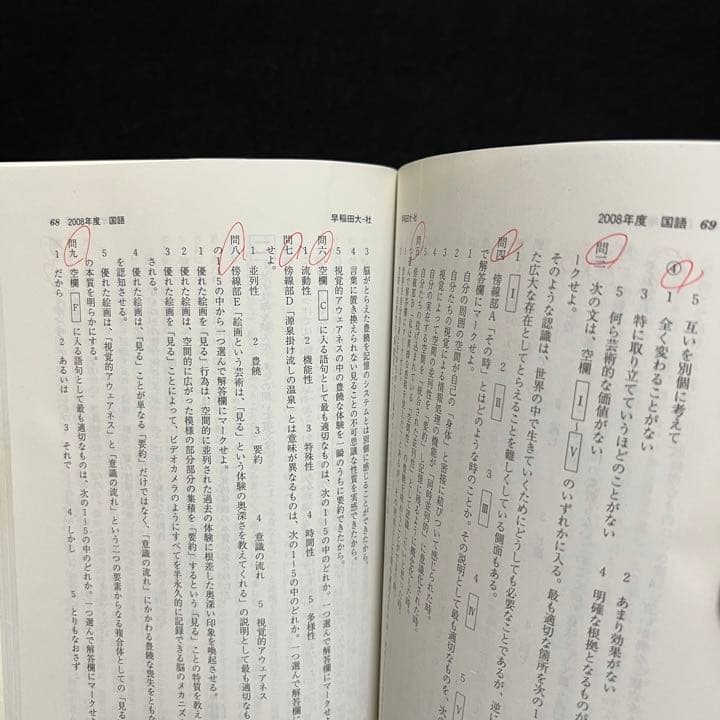 2008年度 国語 69
早稲田大-社
5 互いを別個に考えて
④
1 全く変わることがない 2 あまり効果がない
3 特に取り立てていうほどのことがない 4 明確な根拠となるものが
5 何ら芸術的な価値がない
問三 次の文は、空欄 Ⅰ 〜 Ⅴ のいずれかに入る。最も適切な箇所を次の1
ークせよ。
そのような認識は、世界の中で生きていくためにどうしても必要なことであるが、逆に
た広大な存在としてとらえることを難しくしている側面もある。
1 Ⅰ 2 Ⅱ 3 Ⅲ 4 Ⅳ 5 Ⅴ
問四 傍線部A「その時」とはどのような時のことか。その説明として最も適切な
で解答欄にマークせよ。
1 自分の周囲の空間が自己の「身体」と密接に結びついて感じられた時。
2 自分たちの視覚による情報処理の機能が「同時並列的」に意識化された時。
3 視覚によって空間の並列性を「要約」し
4 自分の存在する空間を
問五 傍線部B
68 2008年度 国語
早稲田大-社
3 脳がとらえた豊饒を記憶のシステムとは別個に感じることができたから。
4 言葉に置き換えられない見ることの不可思議な性質を実感できたから。
5 視覚的アウェアネスの中の豊饒な体験を一瞬のうちに要約できたから。
問六 空欄 C に入る語句として最も適切なものは、次の1〜5の中のどれか。一つ選んで解答欄にマークせ
1 流動性 2 機能性 3 特殊性 4 時間性 5 多様性
問七 傍線部D「源泉掛け流しの温泉」とは意味が異なるものは、次の1〜5の中のどれか。一つ選んで解答欄に
せよ。
1 並列性 2 豊饒 3 要約 4 意識の流れ 5 視覚的アウェアネス
問八 傍線部E「絵画という芸術は、「見る」という体験の奥深さを教えてくれる」の説明として最も適切
の1〜5の中から一つ選んで解答欄にマークせよ。
1 優れた絵画を「見る」行為は、空間的に並列された過去の体験に根差した奥深い印象を喚起させる。
2 優れた絵画は、空間的に広がった模様の部分部分の集積を「要約」するという「見る」ことの特質を教え
3 優れた絵画を「見る」ことによって、ビデオカメラのようにすべてを半永久的に記録できる脳のメカニズ
される。
4 優れた絵画は、「見る」ことが単なる「要約」だけではなく、「意識の流れ」にかかわる豊饒な喪失をともな
を認知させる。
5 優れた絵画は、「視覚的アウェアネス」と「意識の流れ」という二つの要素からなる複合体としての「見る
の本質を明らかにする。
問九 空欄 F に入る語句として最も適切なものは、次の1〜5の中のどれか。一つ選んで解答欄にマークせよ
1 だから 2 あるいは 3 それで 4 しかし 5 とりもなおさず